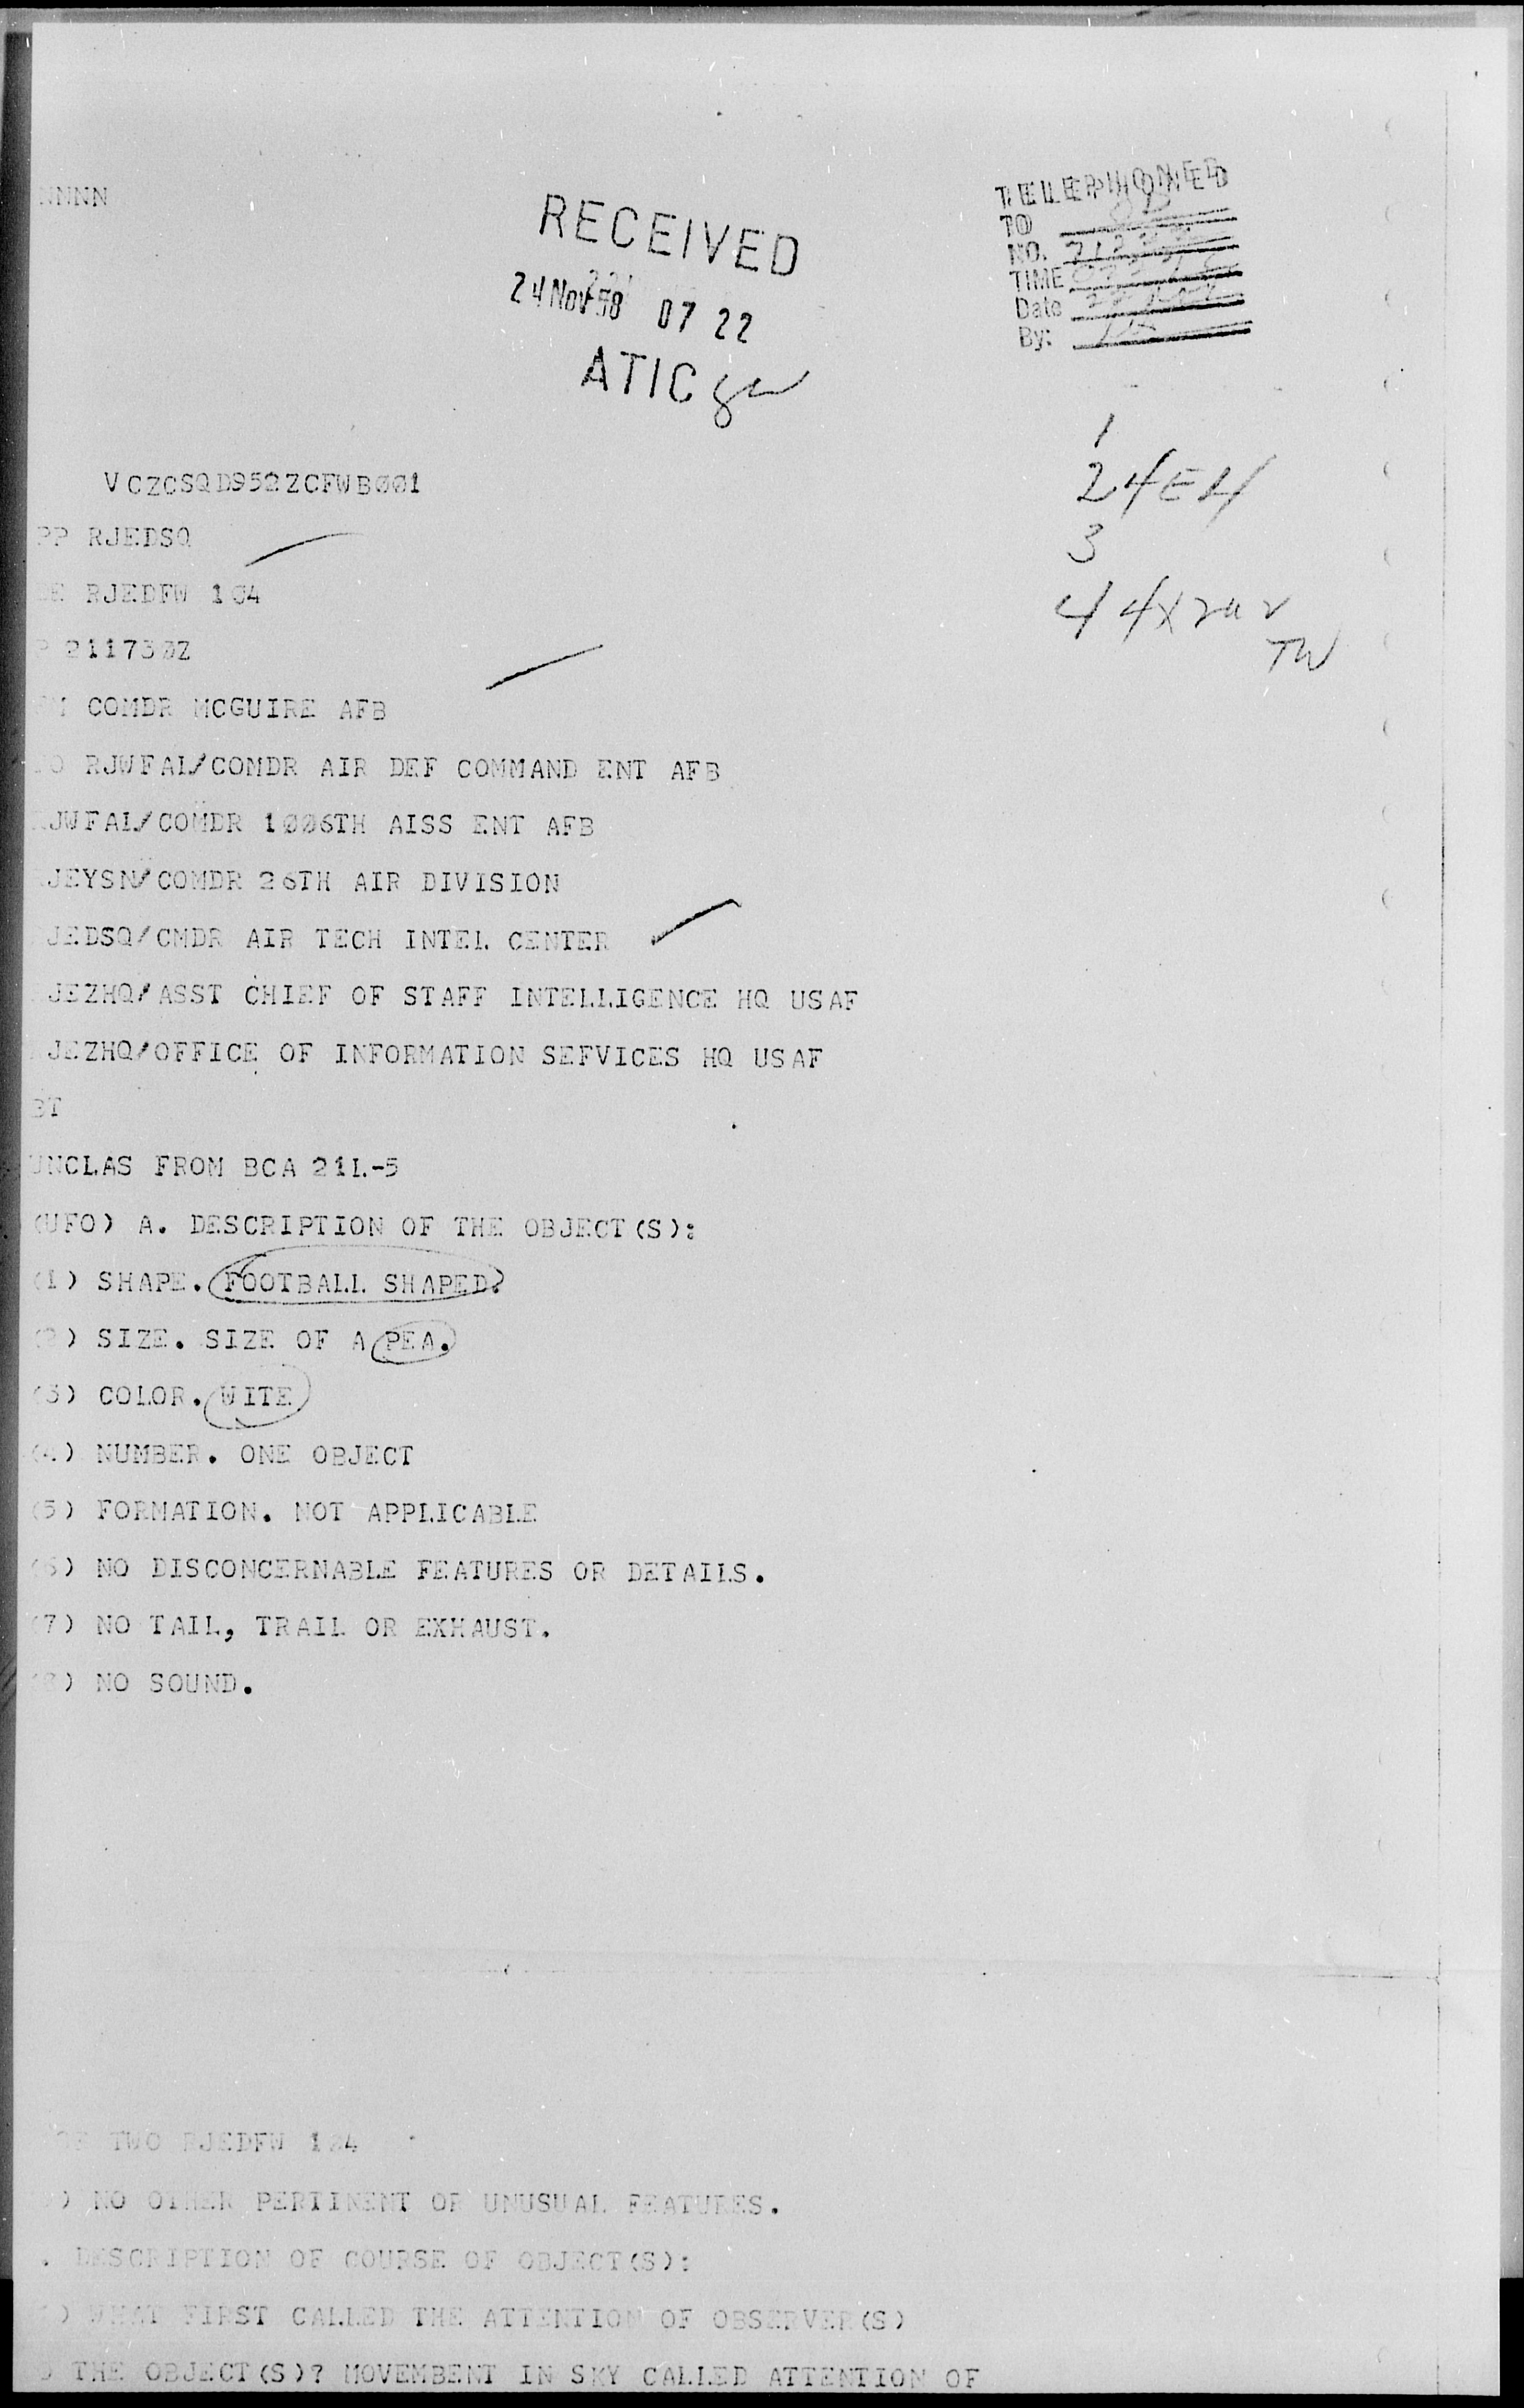 NNNN
RECEIVED
24 Nov 58 07 22
ATIC
TELEPHONED
TO
NO.
TIME
Date
By:
1
2 4E4
3
4 4X
TW
VCZCSQD952ZCFWB001
PP RJEDSQ
DE RJEDFW 104
P 211730Z
FM COMDR MCGUIRE AFB
TO RJWFAL/COMDR AIR DEF COMMAND ENT AFB
RJWFAL/COMDR 1006TH AISS ENT AFB
RJEYSN/COMDR 26TH AIR DIVISION
JEDSQ/CMDR AIR TECH INTEL CENTER
JEZHQ/ASST CHIEF OF STAFF INTELLIGENCE HQ USAF
JEZHQ/OFFICE OF INFORMATION SEFVICES HQ USAF
BT
UNCLAS FROM BCA 21L-5
(UFO) A. DESCRIPTION OF THE OBJECT(S):
(1) SHAPE. FOOTBALL SHAPED?
(2) SIZE. SIZE OF A PEA.
(3) COLOR. WITE
(4) NUMBER. ONE OBJECT
(5) FORMATION. NOT APPLICABLE
(6) NO DISCONCERNABLE FEATURES OR DETAILS.
(7) NO TAIL, TRAIL OR EXHAUST.
(8) NO SOUND.
OF TWO RJEDFW 104
) NO OTHER PERTINENT OR UNUSUAL FEATURES.
. DESCRIPTION OF COURSE OF OBJECT(S):
) WHAT FIRST CALLED THE ATTENTION OF OBSERVER(S)
THE OBJECT(S)? MOVEMBENT IN SKY CALLED ATTENTION OF